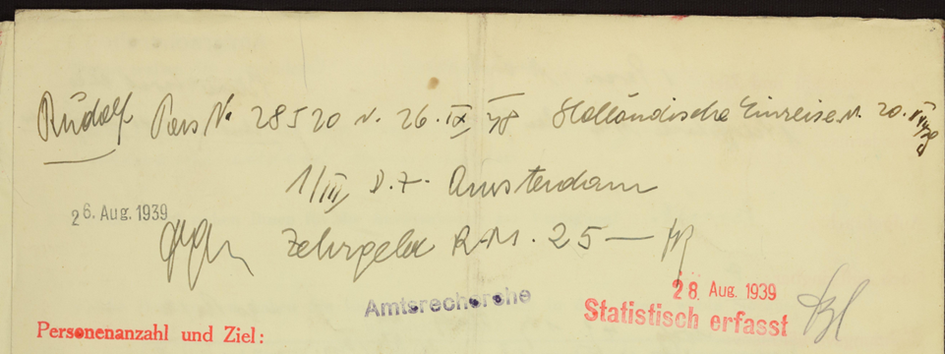 Rudolf Pass Nr. 28520 v. 26.IX 38 Holländische Einreise v. 20.
1/III Amsterdam
26. Aug. 1939
Zehrgeld RM. 25—
Amtsrecherche
28. Aug. 1939
Statistisch erfasst
Personenanzahl und Ziel: